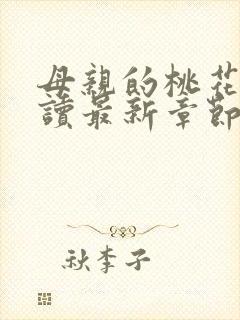 母親的桃花
讀最新章節
秋李子